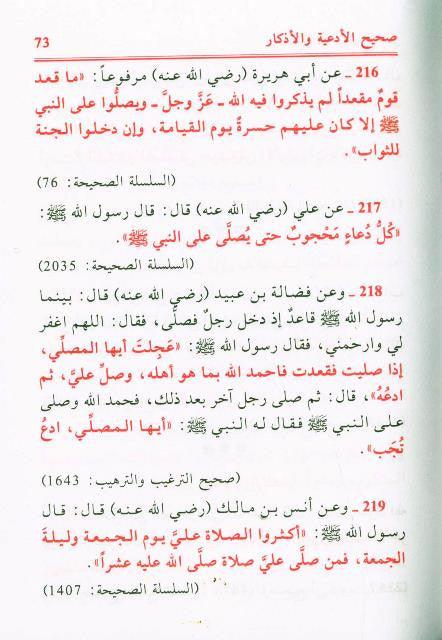 صحيح الأدعية والأذكار 73
216 ـ عن أبي هريرة (رضي الله عنه) مرفوعاً: «ما قعد
قومٌ مقعداً لم يذكروا فيه الله ـ عَزَّ وجلَّ ـ ويصلُّوا على النبي
ﷺ إلا كان عليهم حسرةً يوم القيامة، وإن دخلوا الجنة
للثواب».
(السلسلة الصحيحة: 76)
217 ـ عن علي (رضي الله عنه) قال: قال رسول الله ﷺ:
«كُلُّ دُعاءٍ مَحْجوبٌ حتى يُصلَّى على النبي ﷺ».
(السلسلة الصحيحة: 2035)
218 ـ وعن فضالة بن عبيد (رضي الله عنه) قال: بينما
رسول الله ﷺ قاعدٌ إذ دخل رجلٌ فصلَّى، فقال: اللهم اغفر
لي وارحمني، فقال رسول الله ﷺ: «عَجِلتَ أيها المصلِّي،
إذا صليت فقعدت فاحمد الله بما هو أهله، وصلِّ عليَّ، ثم
ادعُهُ»، قال: ثم صلى رجل آخر بعد ذلك، فحمد الله وصلى
على النبي ﷺ فقال له النبي ﷺ: «أيها المصلِّي، ادعُ
تُجَب».
(صحيح الترغيب والترهيب: 1643)
219 ـ وعن أنس بن مالك (رضي الله عنه) قال: قال
رسول الله ﷺ: «أكثروا الصلاة عليَّ يوم الجمعة وليلةَ
الجمعة، فمن صلَّى عليَّ صلاة صلَّى الله عليه عشراً».
(السلسلة الصحيحة: 1407)